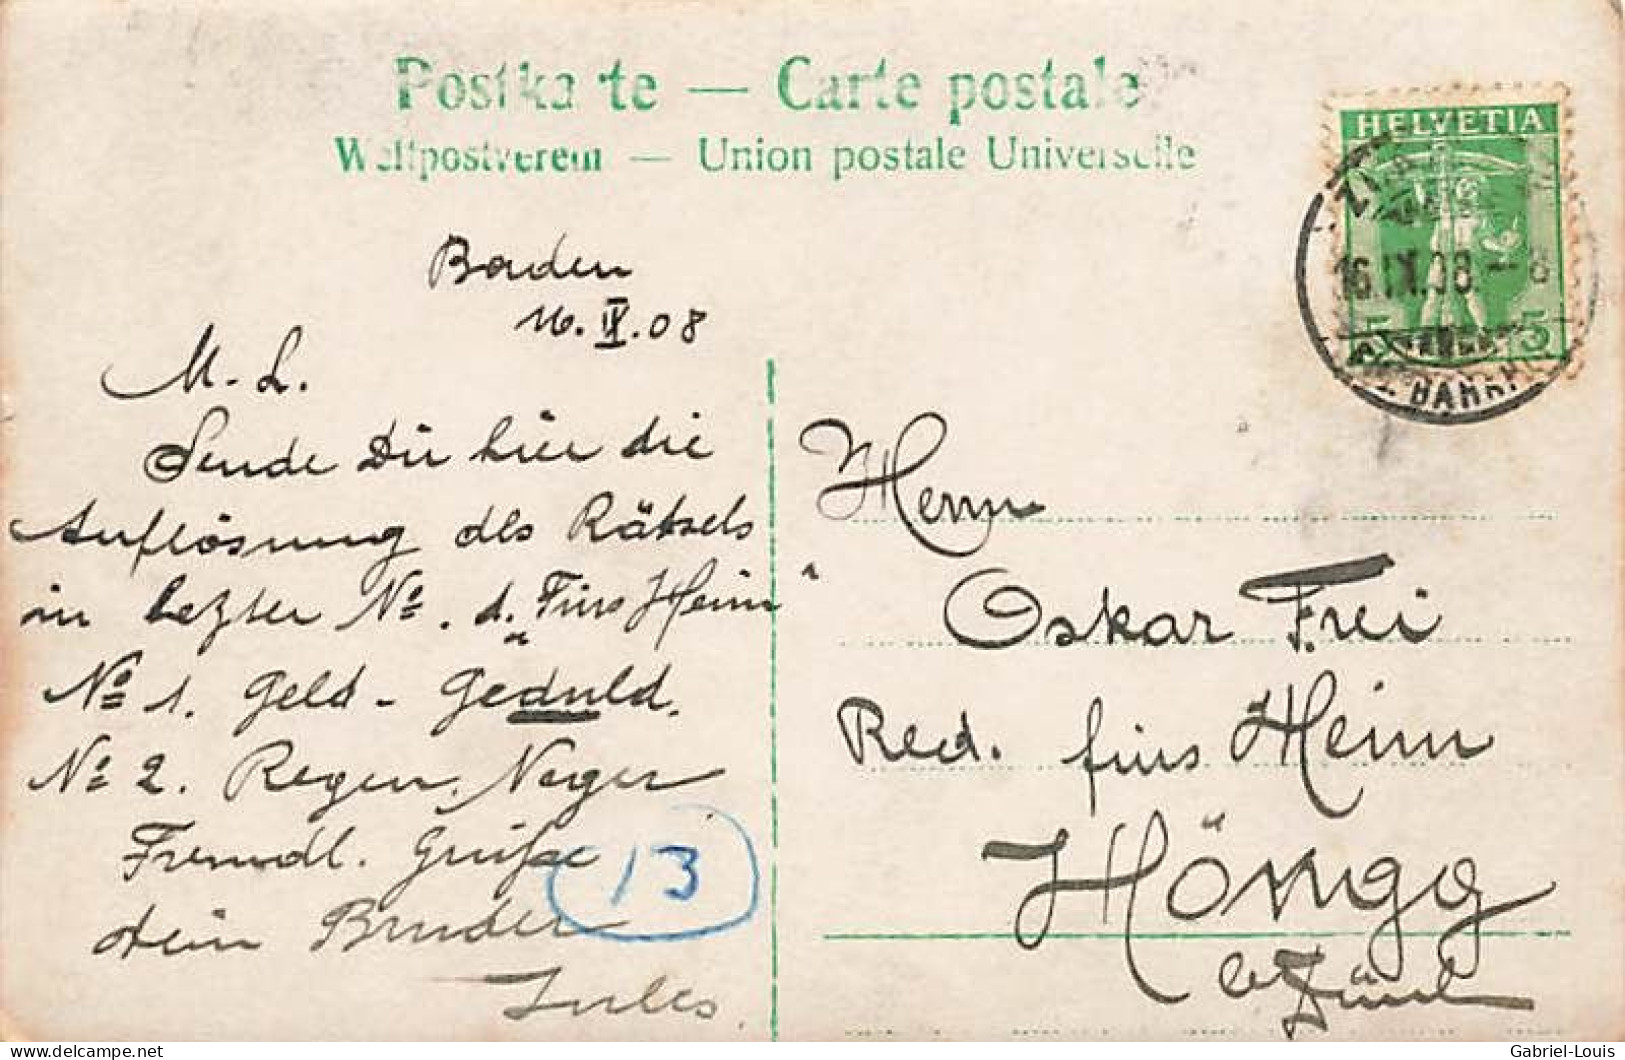 Postkarte — Carte postale
Weltpostverein — Union postale Universelle
HELVETIA
16.IX.08.–8
5 5
BAHNH
Baden
16. IX. 08
M. L.
Sende Dir hier die
Auflösung des Rätsels
in letzter No. d. „Fürs Heim"
No 1. Geld - Geduld.
No 2. Regen, Neger
Freundl. Grüße
dein Bruder
Jules.
13
Herrn
Oskar Frei
Red. fürs Heim
Höngg
b/Zürich
Gabriel-Louis
delcampe.net